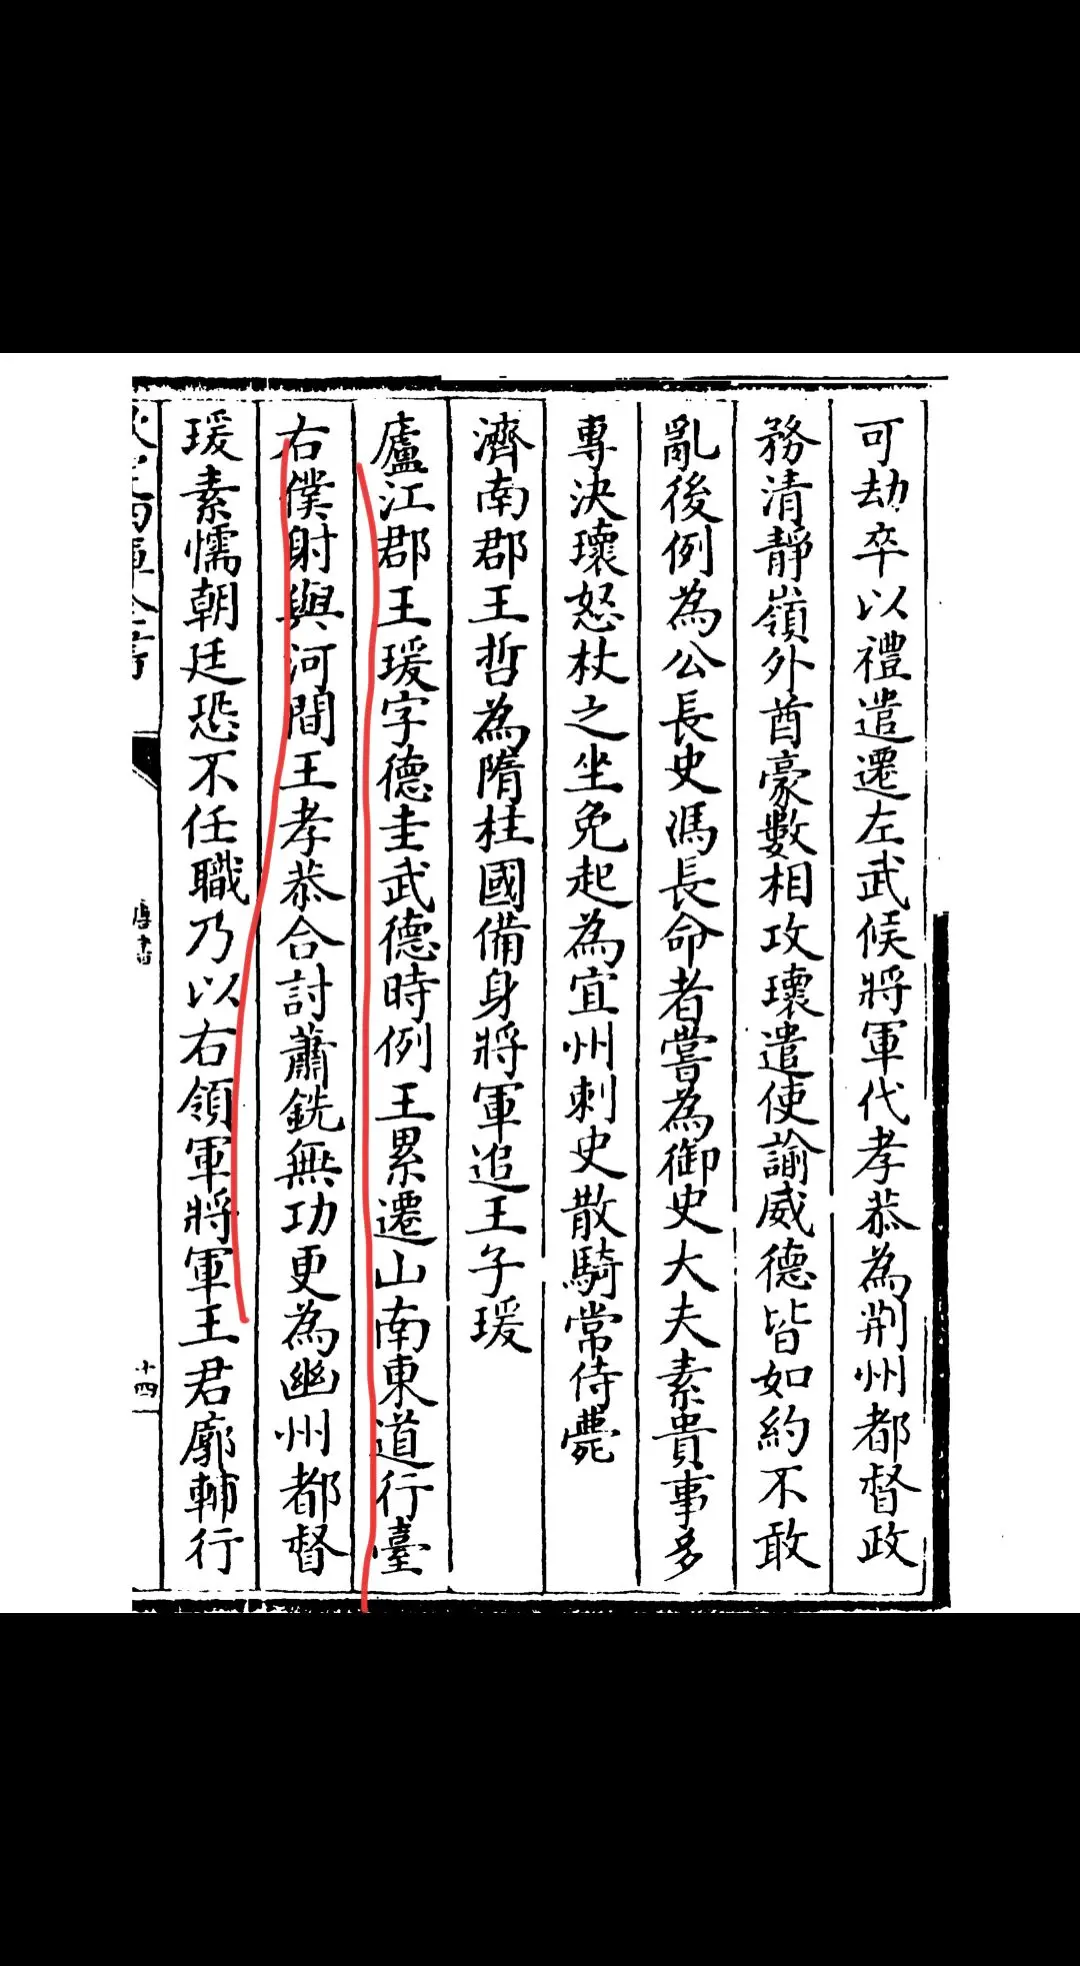 可劫卒以禮遣遷左武候將軍代孝恭為荆州都督政
務清靜嶺外酋豪數相攻瓌遣使諭威德皆如約不敢
亂後例為公長史馮長命者嘗為御史大夫素貴事多
專決瓌怒杖之坐免起為宜州刺史散騎常侍薨
濟南郡王哲為隋柱國備身將軍追王子瑗
廬江郡王瑗字德圭武德時例王累遷山南東道行臺
右僕射與河間王孝恭合討蕭銑無功更為幽州都督
瑗素懦朝廷恐不任職乃以右領軍將軍王君廓輔行
唐書
十四